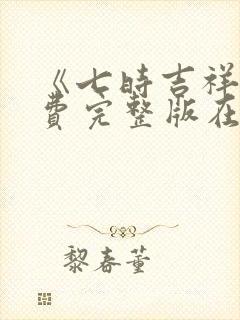 《七时吉祥
费完整版在
黎春董